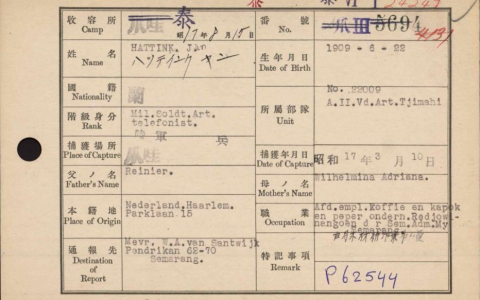 泰
24249
收容所
Camp
爪哇 泰
昭 17年8月15日
番號
No.
爪 III 5694
4131
姓名
Name
HATTINK, Jan
ハツテインク ヤン
生年月日
Date of Birth
1909 - 6 - 22
國籍
Nationality
蘭
所屬部隊
Unit
No. 22009
A.II.Vd.Art.Tjimahi
階級身分
Rank
Mil.Soldt.Art.
telefonist.
陸軍 兵
捕獲場所
Place of Capture
爪哇
捕獲年月日
Date of Capture
昭和 17年 3月 10日
父ノ名
Father's Name
Reinier.
母ノ名
Mother's Name
Wilhelmina Adriana.
本籍地
Place of Origin
Nederland, Haarlem.
Parklaan 15
職業
Occupation
Afd.empl.Koffie en kapok
en peper ondern.
Sem.Adm.My
Semarang.
通報先
Destination of Report
Mevr. W.A.van Santwijk
Pendrikan 68-70
Semarang.
特記事項
Remark
P62544